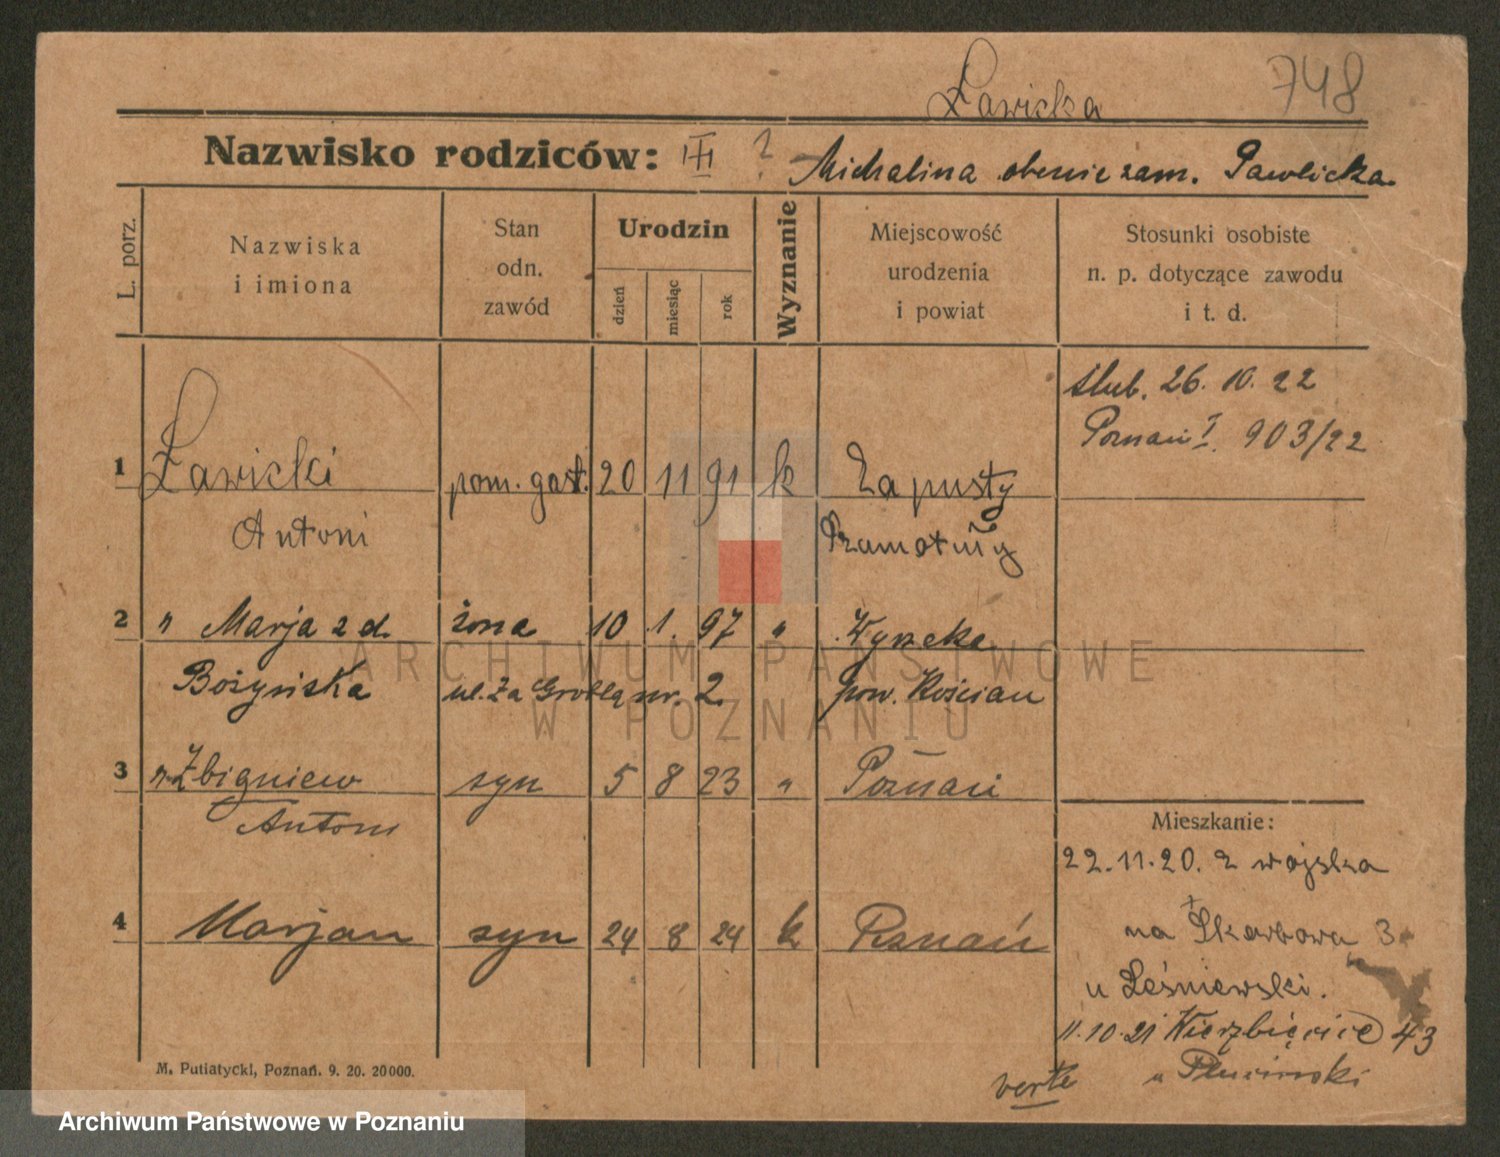 Ławicka 748
Nazwisko rodziców: III ? Michalina obecnie zam. Pawlicka
L. porz.
Nazwiska
i imiona
Stan
odn.
zawód
Urodzin
dzień
miesiąc
rok
Wyznanie
Miejscowość
urodzenia
i powiat
Stosunki osobiste
n. p. dotyczące zawodu
i t. d.
ślub. 26. 10. 22
Poznań I. 903/22
1 Ławicki pom. gast. 20 11 91 k Zapusty
Antoni Szamotuły
2 " Marja z d. żona 10 1. 97 "
Bożyńska ul. Za Groblą nr. 2 pow. Kościan
3 " Zbigniew syn 5 8 23 " Poznań
Antoni
4 Marjan syn 24 8 24 k Poznań
Mieszkanie:
22.11.20. z wojska
na Skarbowa 3
u Leśniewski.
11.10.21 Wierzbięcice 43
u
verte
M. Putiatycki, Poznań. 9. 20. 20000.
ARCHIWUM PAŃSTWOWE
W POZNANIU
Archiwum Państwowe w Poznaniu